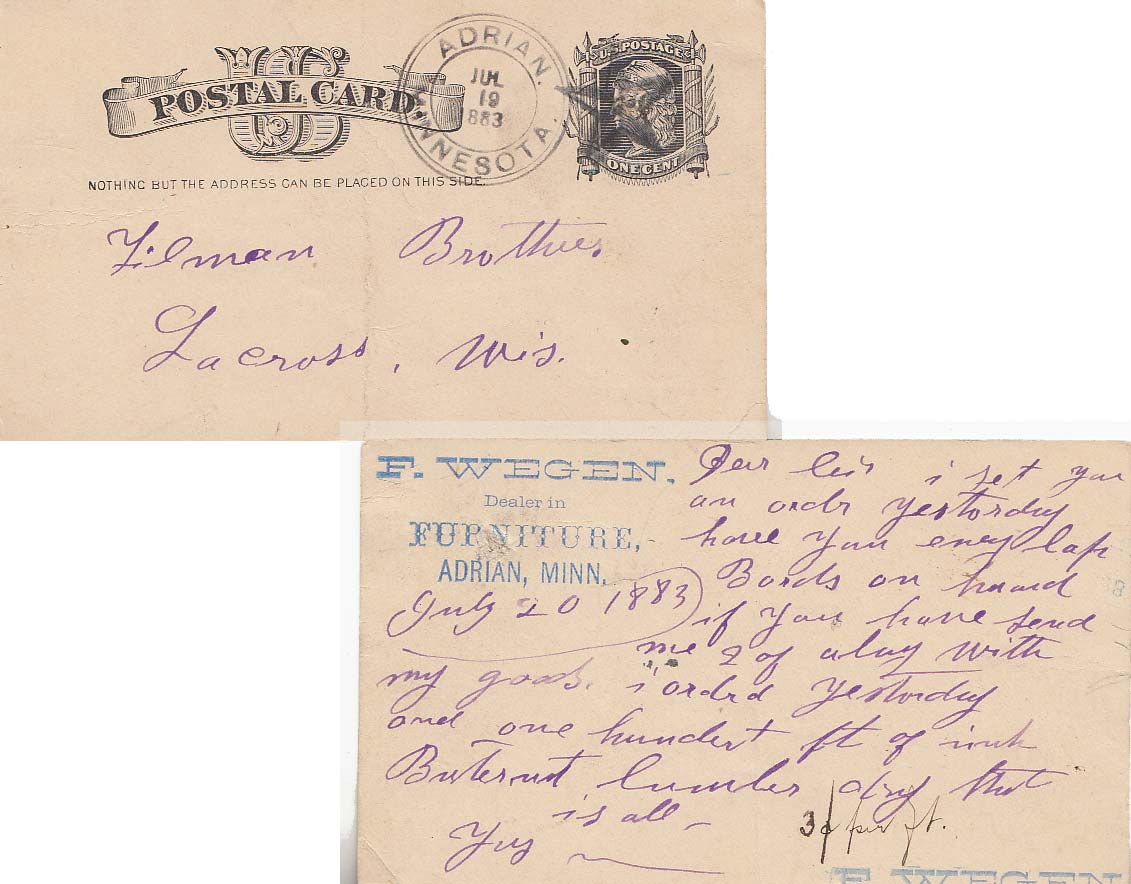 U S
POSTAL CARD.
ADRIAN.
JUL
19
1883
MINNESOTA.
U.S. POSTAGE
ONE CENT
NOTHING BUT THE ADDRESS CAN BE PLACED ON THIS SIDE.
Tilman Brothers
Lacross, Wis.
F. WEGEN,
Dealer in
FURNITURE,
ADRIAN, MINN.
July 20 1883
Dear Sir i set you
an ordr yestorday
have you eney lap
Bords on haand
if you have send
me 2 of alug with
my goods. i ordrd yestorday
and one hundert ft of inch
Buternut lumber dry that
is all -
Yus
3¢ per ft.
F. WEGEN